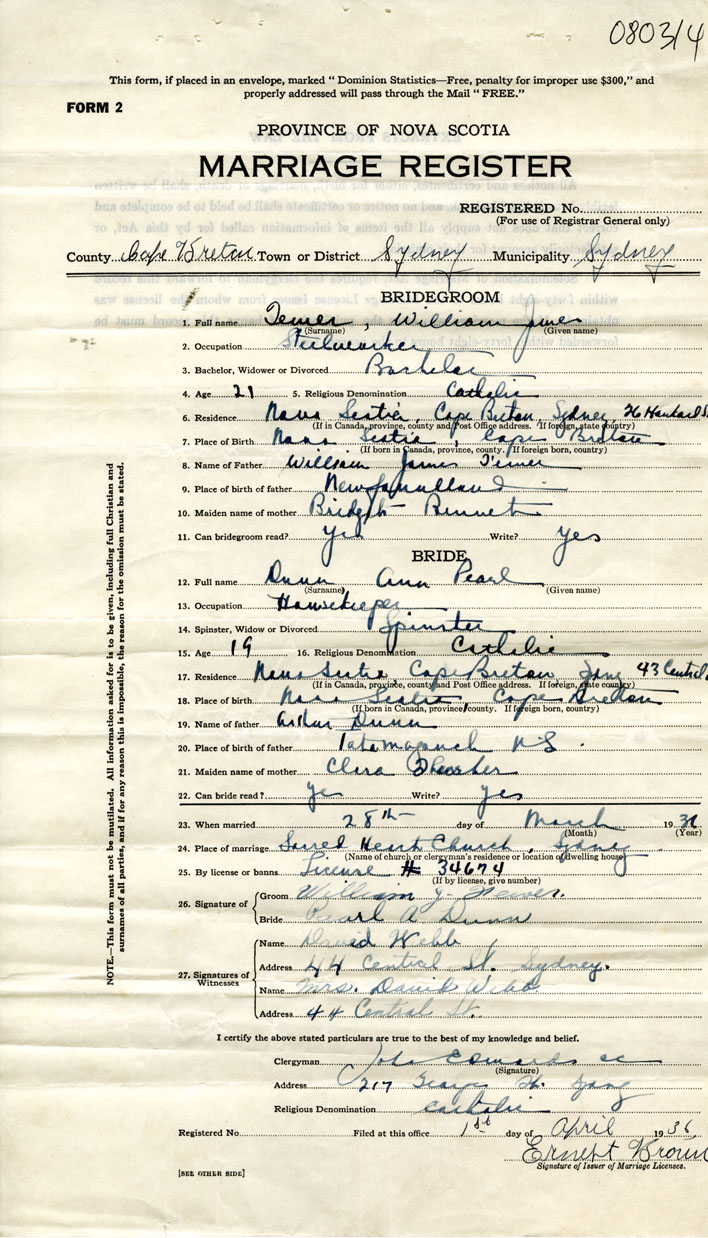 080314
This form, if placed in an envelope, marked “ Dominion Statistics—Free, penalty for improper use $300,” and
properly addressed will pass through the Mail “ FREE.”
FORM 2
PROVINCE OF NOVA SCOTIA
MARRIAGE REGISTER
REGISTERED No.
(For use of Registrar General only)
County Cape Breton Town or District Sydney Municipality Sydney
BRIDEGROOM
1. Full name , William James
(Surname) (Given name)
2. Occupation Steelworker
3. Bachelor, Widower or Divorced Bachelor
4. Age 21 5. Religious Denomination Catholic
6. Residence Nova Scotia, Cape Breton, Sydney 26
(If in Canada, province, county and Post Office address. If foreign, state country)
7. Place of Birth Nova Scotia, Cape Breton
(If born in Canada, province, county. If foreign born, country)
8. Name of Father William James
9. Place of birth of father Newfoundland
10. Maiden name of mother Bridget Bennett
11. Can bridegroom read? yes Write? yes
BRIDE
12. Full name Dunn Ann Pearl
(Surname) (Given name)
13. Occupation Housekeeper
14. Spinster, Widow or Divorced Spinster
15. Age 19 16. Religious Denomination Catholic
17. Residence Nova Scotia, Cape Breton, 43 Central
(If in Canada, province, county and Post Office address. If foreign, state country)
18. Place of birth Nova Scotia, Cape Breton
(If born in Canada, province/county. If foreign born, country)
19. Name of father Arthur Dunn
20. Place of birth of father N S.
21. Maiden name of mother Clara
22. Can bride read? yes Write? yes
23. When married 28th day of March 19
(Month) (Year)
24. Place of marriage Sacred Heart Church, Sydney
(Name of church or clergyman's residence or location of dwelling house)
25. By license or banns License # 34674
(If by license, give number)
26. Signature of
Groom William J.
Bride Pearl A Dunn
27. Signatures of Witnesses
Name David Webb
Address 44 Central St. Sydney.
Name Mrs. David Webb
Address 44 Central St.
I certify the above stated particulars are true to the best of my knowledge and belief.
Clergyman John Edwards cc
(Signature)
Address 217 George St.
Religious Denomination Catholic
Registered No. Filed at this office 1st day of April 1936
Ernest Brown
Signature of Issuer of Marriage Licenses.
[SEE OTHER SIDE]
NOTE.—This form must not be mutilated. All information asked for is to be given, including full Christian and
surnames of all parties, and if for any reason this is impossible, the reason for the omission must be stated.